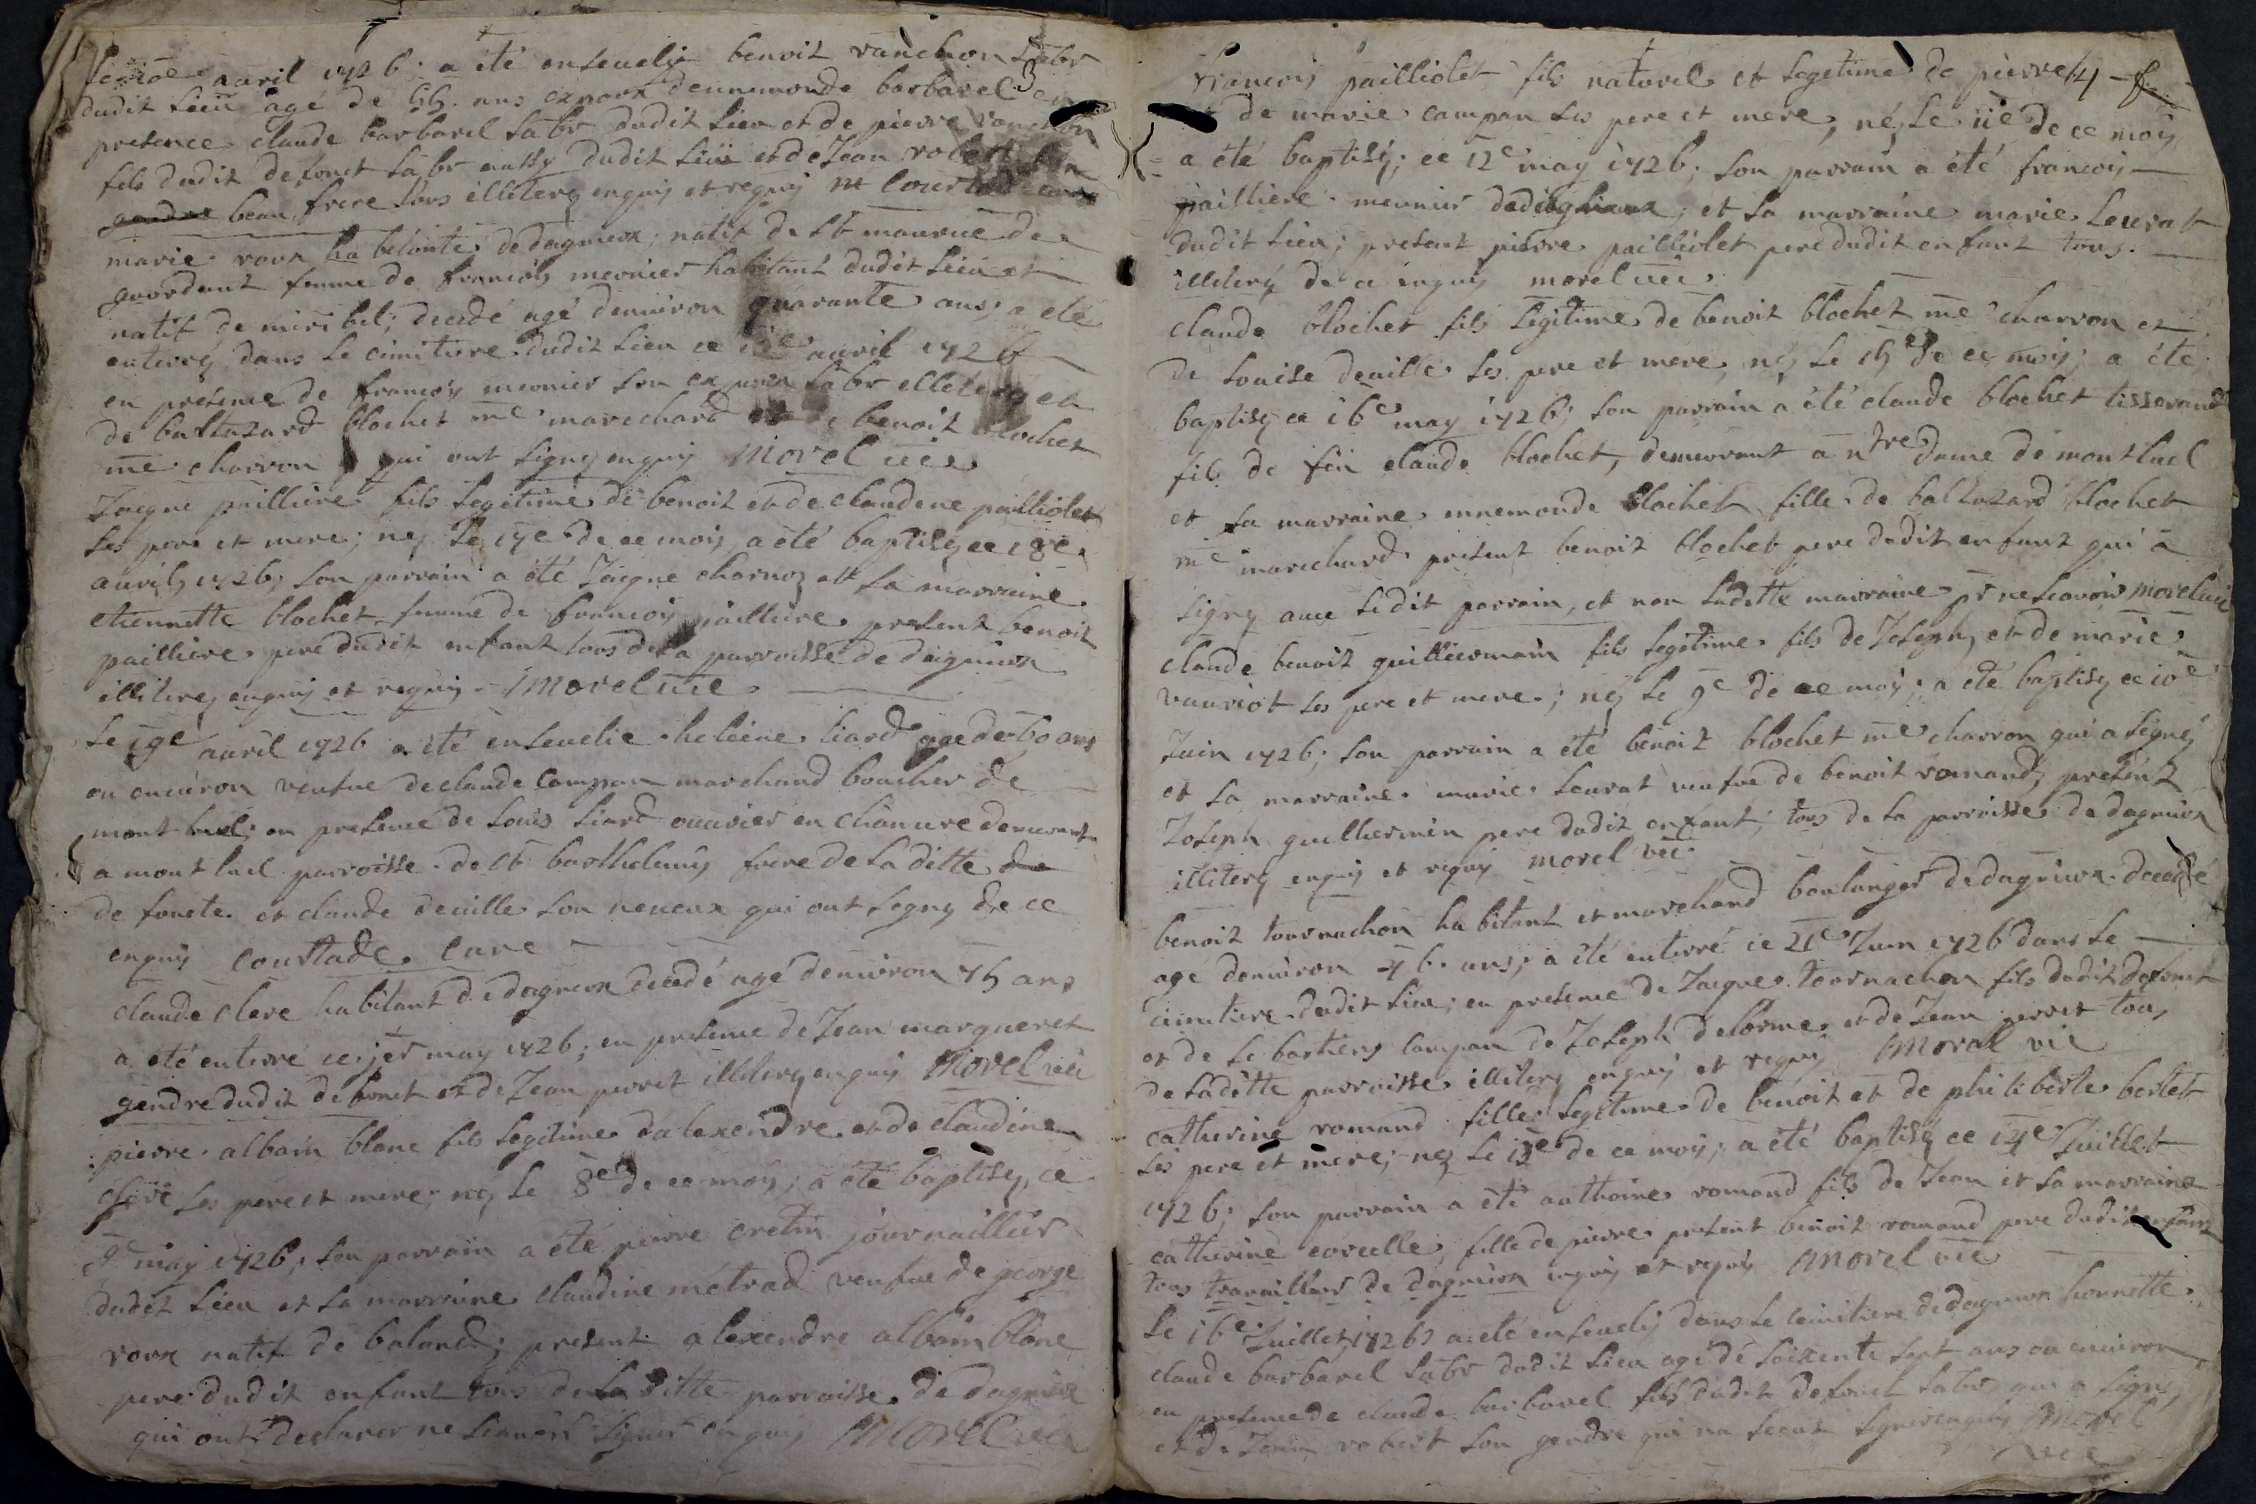 avril 1726; a été ensevelij benoit vanchon labr
dudit lieu agé de 55. ans expoux dennemonde barbarel en
presence claude barbarel labr dudit lieu et de pierre vanchon
fils dudit defonct labr aussy dudit lieu et de Jean robert son
beau frere tous illiterés enquis et requis
marie roux habitante de dagnieux; natif de st maurice de
gourdant femme de francois meunier habitant dudit lieu et
natif de miribel; decedé agé denuiron quarante ans; a eté
enterré dans le cimitiere dudit lieu ce avril 1726
en présence de francois meunier son expoux labr illeteré et
de baltazard blochet me marechard et de benoit blochet
me charron qui ont signés enquis Morel vice
Jacque pailliere fils legitime de benoit et de claudine pailliolet
ses pere et mere; nez le 17e de ce mois, a été baptisé ce 18e
auril 1726; son parrain a été Jacque charnoz et sa marraine
etiennette blochet femme de francois pailliere present benoit
pailliere pere dudit enfant tous de la parroisse de dagnieux
illiteres enquis et requis Morel vice
Le 19e auril 1726 a été enseuelie heleine liard agee de 60 ans
ou enuiron veufue de claude Campan marchand boucher de
mont luel; en presence de louis liard ouurier en chanure demeurant
a mont luel parroisse de st barthelemÿ frere de la ditte de
defoncte et claude deuille son neueux qui ont signy de ce
enquis Courtade Cure
claude clere habitant de dagnieux decedé agé denuiron 75 ans
a été enterré ce jer may 1726; en presence de Jean margueret
gendre dudit defonct et de Jean perret illiteres enquis Morel vice
pierre albain blanc fils legitime dalexendre et de claudine
clere ses pere et mere; né, le 8e de ce mois; a été baptisé, ce
9e may 1726; son parrain a été pierre cretin journaillier
dudit lieu et sa marraine claudine métrad veufue de george
roux natif de baland; present alexendre albain blanc
pere dudit enfant tous de laditte parroisse de dagnieux
qui ont declarer ne scauoir signer enquis Morel vice
3
francois pailliolet fils naturel et legetime de pierre
de marie campan ses pere et mere, né, le 11e de ce mois
a été baptisé; ce 12e may 1726; son parrain a été francois
pailliere meunier de dagnieux; et sa marraine marie leurat
dudit lieu; present pierre pailliolet pere dudit enfant tous
illiterés de ce enquis morel vice
claude blochet fils legitime de benoit blochet me charron et
de louise deuille ses pere et mere, né, le 15e de ce mois; a été
baptisé ce 16e may 1726; son parrain a été claude blochet tisserand
fils de feu claude blochet, demeurant a ntre dame de montluel
et sa marraine ennemonde blochet fille de baltazard blochet
me marechard present benoit blochet pere dudit enfant qui a
signy auec ledit parrain, et non laditte marraine pr ne scauoir Morel vice
claude benoit guilliermain fils legitime fils de Joseph, et de marie
vauriot ses pere et mere; né, le 9e de ce mois; a été baptisé ce 10e
Juin 1726; son parrain a été benoit blochet me charron qui a signé
et sa marraine marie leurat veufue de benoit romand; présent
Joseph guilliermin pere dudit enfant; tous de la parroisse de dagnieux
illiterés enquis et requis morel vice
benoit tournachon habitant et marchand boulanger de dagnieux decedé
agé denuiron 46 ans; a été enterré ce 21e Juin 1726 dans le
cimitiere dudit lieu; en presence de Jacque tournachon fils dudit defonct
et de sebastiens campan de Joseph delorme et de Jean perret tous
de laditte parroisse illiterés enquis et requis Morel vice
catherine romand fille legitime de benoit et de philiberte berlet
ses pere et mere; nez le 13e de ce mois; a été baptisé ce 14e Juillet
1726; son parrain a été anthoine romand fils de Jean et sa marraine
catherine corcelle, fille de pierre present benoit romand pere dudit enfant
tous trauaillier de dagnieux enquis et requis Morel vice
le 16e Juillet 1726 a été enseuelij dans le cimitiere de dagnieux honnette
claude barbarel labr dudit lieu agé de soixente sept ans ou enuiron
en presence de claude barbarel fils dudit defonct labr, qui a signy,
et de Jean robert son gendre qui na sceut signer enquis Morel
vice